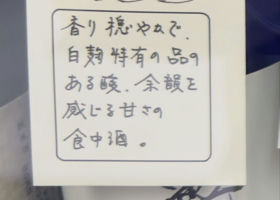 香り穏やかで、
白麹特有の品の
ある酸、余韻を
感じる甘さの
食中酒。